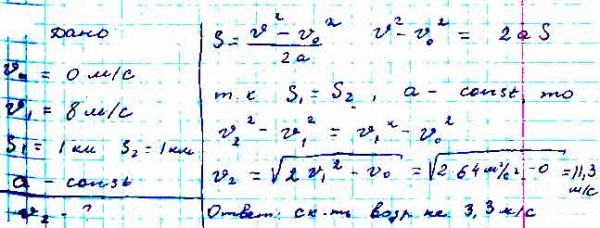 Дано
v₀ = 0 м/с
v₁ = 8 м/с
S₁ = 1 км S₂ = 1 км
a - const
v₂ - ?
S = (v² - v₀²)/2a v² - v₀² = 2aS
т.к S₁ = S₂, a - const, то
v₂² - v₁² = v₁² - v₀²
v₂ = √(2v₁² - v₀) = √(2·64 м²/с² - 0) = 11,3 м/с
Ответ: ск-ть возр. на 3,3 м/с